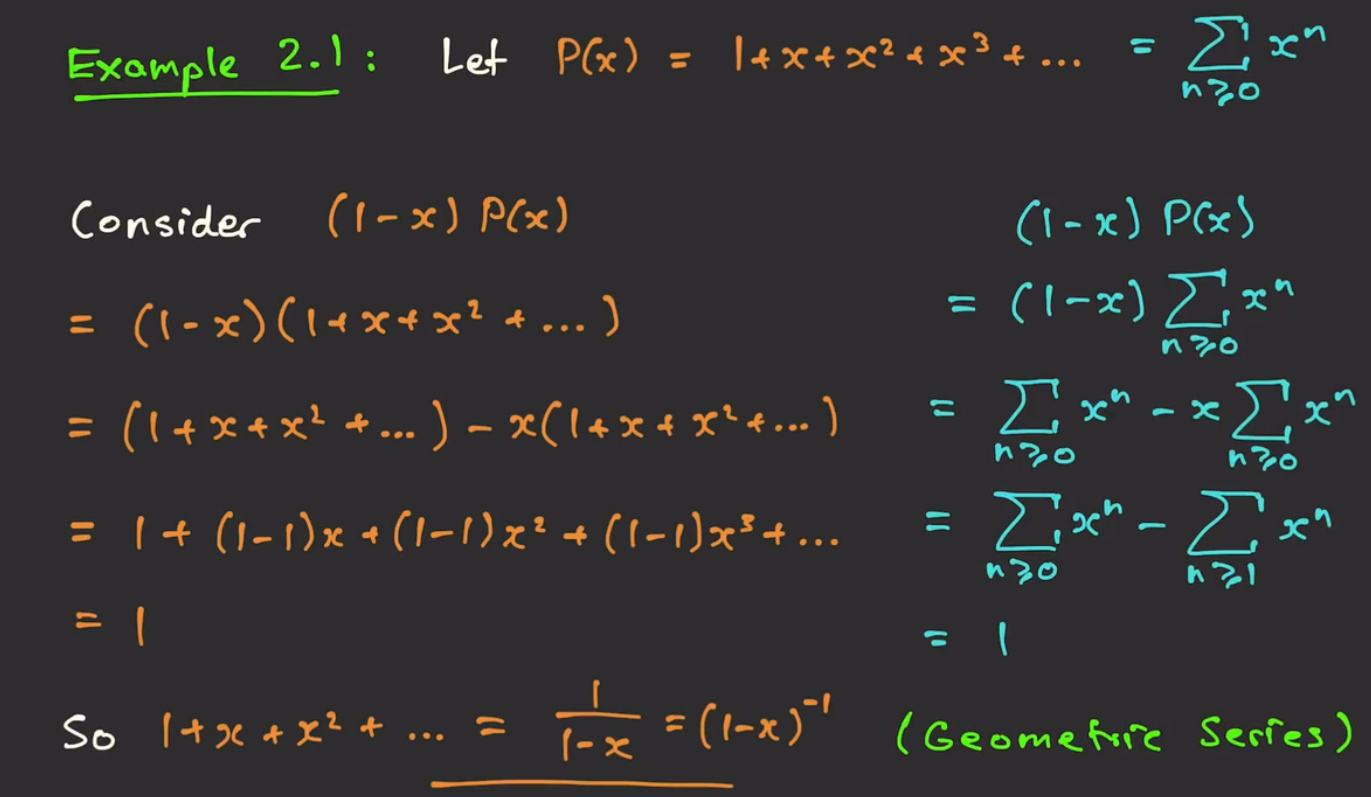 Example 2.1: Let P(x) = 1+x+x²+x³+... = ∑_{n≥0} xⁿ
Consider (1-x) P(x)
= (1-x)(1+x+x²+...)
= (1+x+x²+...) - x(1+x+x²+...)
= 1+(1-1)x+(1-1)x²+(1-1)x³+...
= 1
(1-x) P(x)
= (1-x) ∑_{n≥0} xⁿ
= ∑_{n≥0} xⁿ - x ∑_{n≥0} xⁿ
= ∑_{n≥0} xⁿ - ∑_{n≥1} xⁿ
= 1
So 1+x+x²+... = 1/(1-x) = (1-x)⁻¹ (Geometric Series)